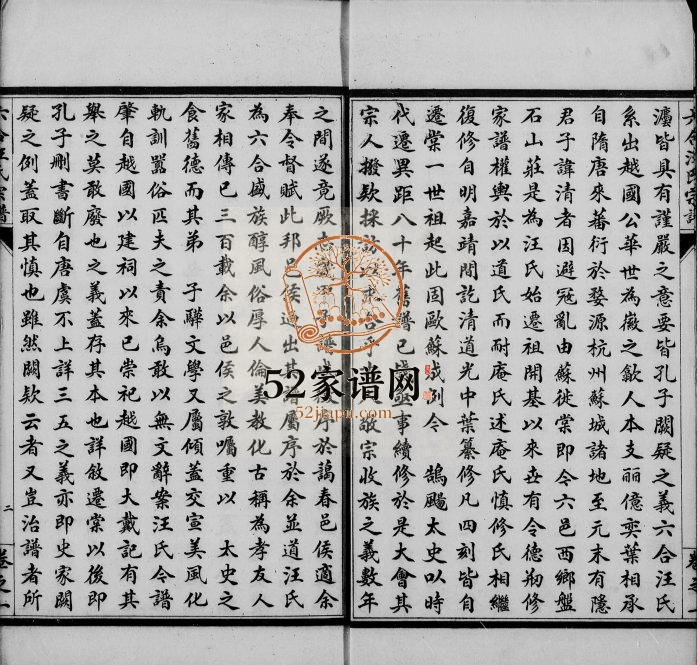 瀛皆具有謹嚴之意要皆孔子闕疑之義六合汪氏
系出越國公華世為徽之歙人本支麗億奕葉相承
自隋唐來蕃衍於婺源杭州蘇城諸地至元末有隱
君子諱清者因避冦亂由蘇徙棠即今六邑西鄉盤
石山莊是為汪氏始遷祖開基以來世有令德剏修
家譜權輿於以道氏而耐庵氏述庵氏慎修氏相繼
復修自明嘉靖間訖清道光中葉纂修凡四刻皆自
遷棠一世祖起此固歐蘇成例今 鵠颺太史以時
代遷異距八十年舊譜已
事續修於是大會其
宗人撥欵採訪
敬宗收族之義數年
之間遂竟厥志
序於藹春邑侯適余
奉令督賦此邦邑侯
出其
屬序於余並道汪氏
為六合盛族醇風俗厚人倫美教化古稱為孝友人
家相傳已三百載余以邑侯之敦囑重以 太史之
食舊德而其弟 子驊文學又屬傾蓋交宣美風化
軌訓囂俗匹夫之責余烏敢以無文辭案汪氏令譜
肇自越國以建祠以來已崇祀越國即大戴記有其
舉之莫敢廢也之義蓋存其本也詳敘遷棠以後即
孔子刪書斷自唐虞不上詳三五之義亦即史家闕
疑之例蓋取其慎也雖然闕欵云者又豈治譜者所
六合汪氏宗譜
二
卷之一
52家谱网
52jiapu.com